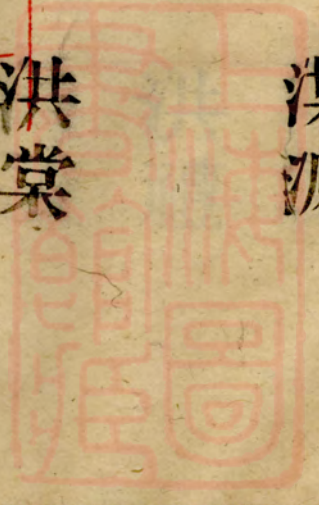 上海圖
書館藏
洪棠